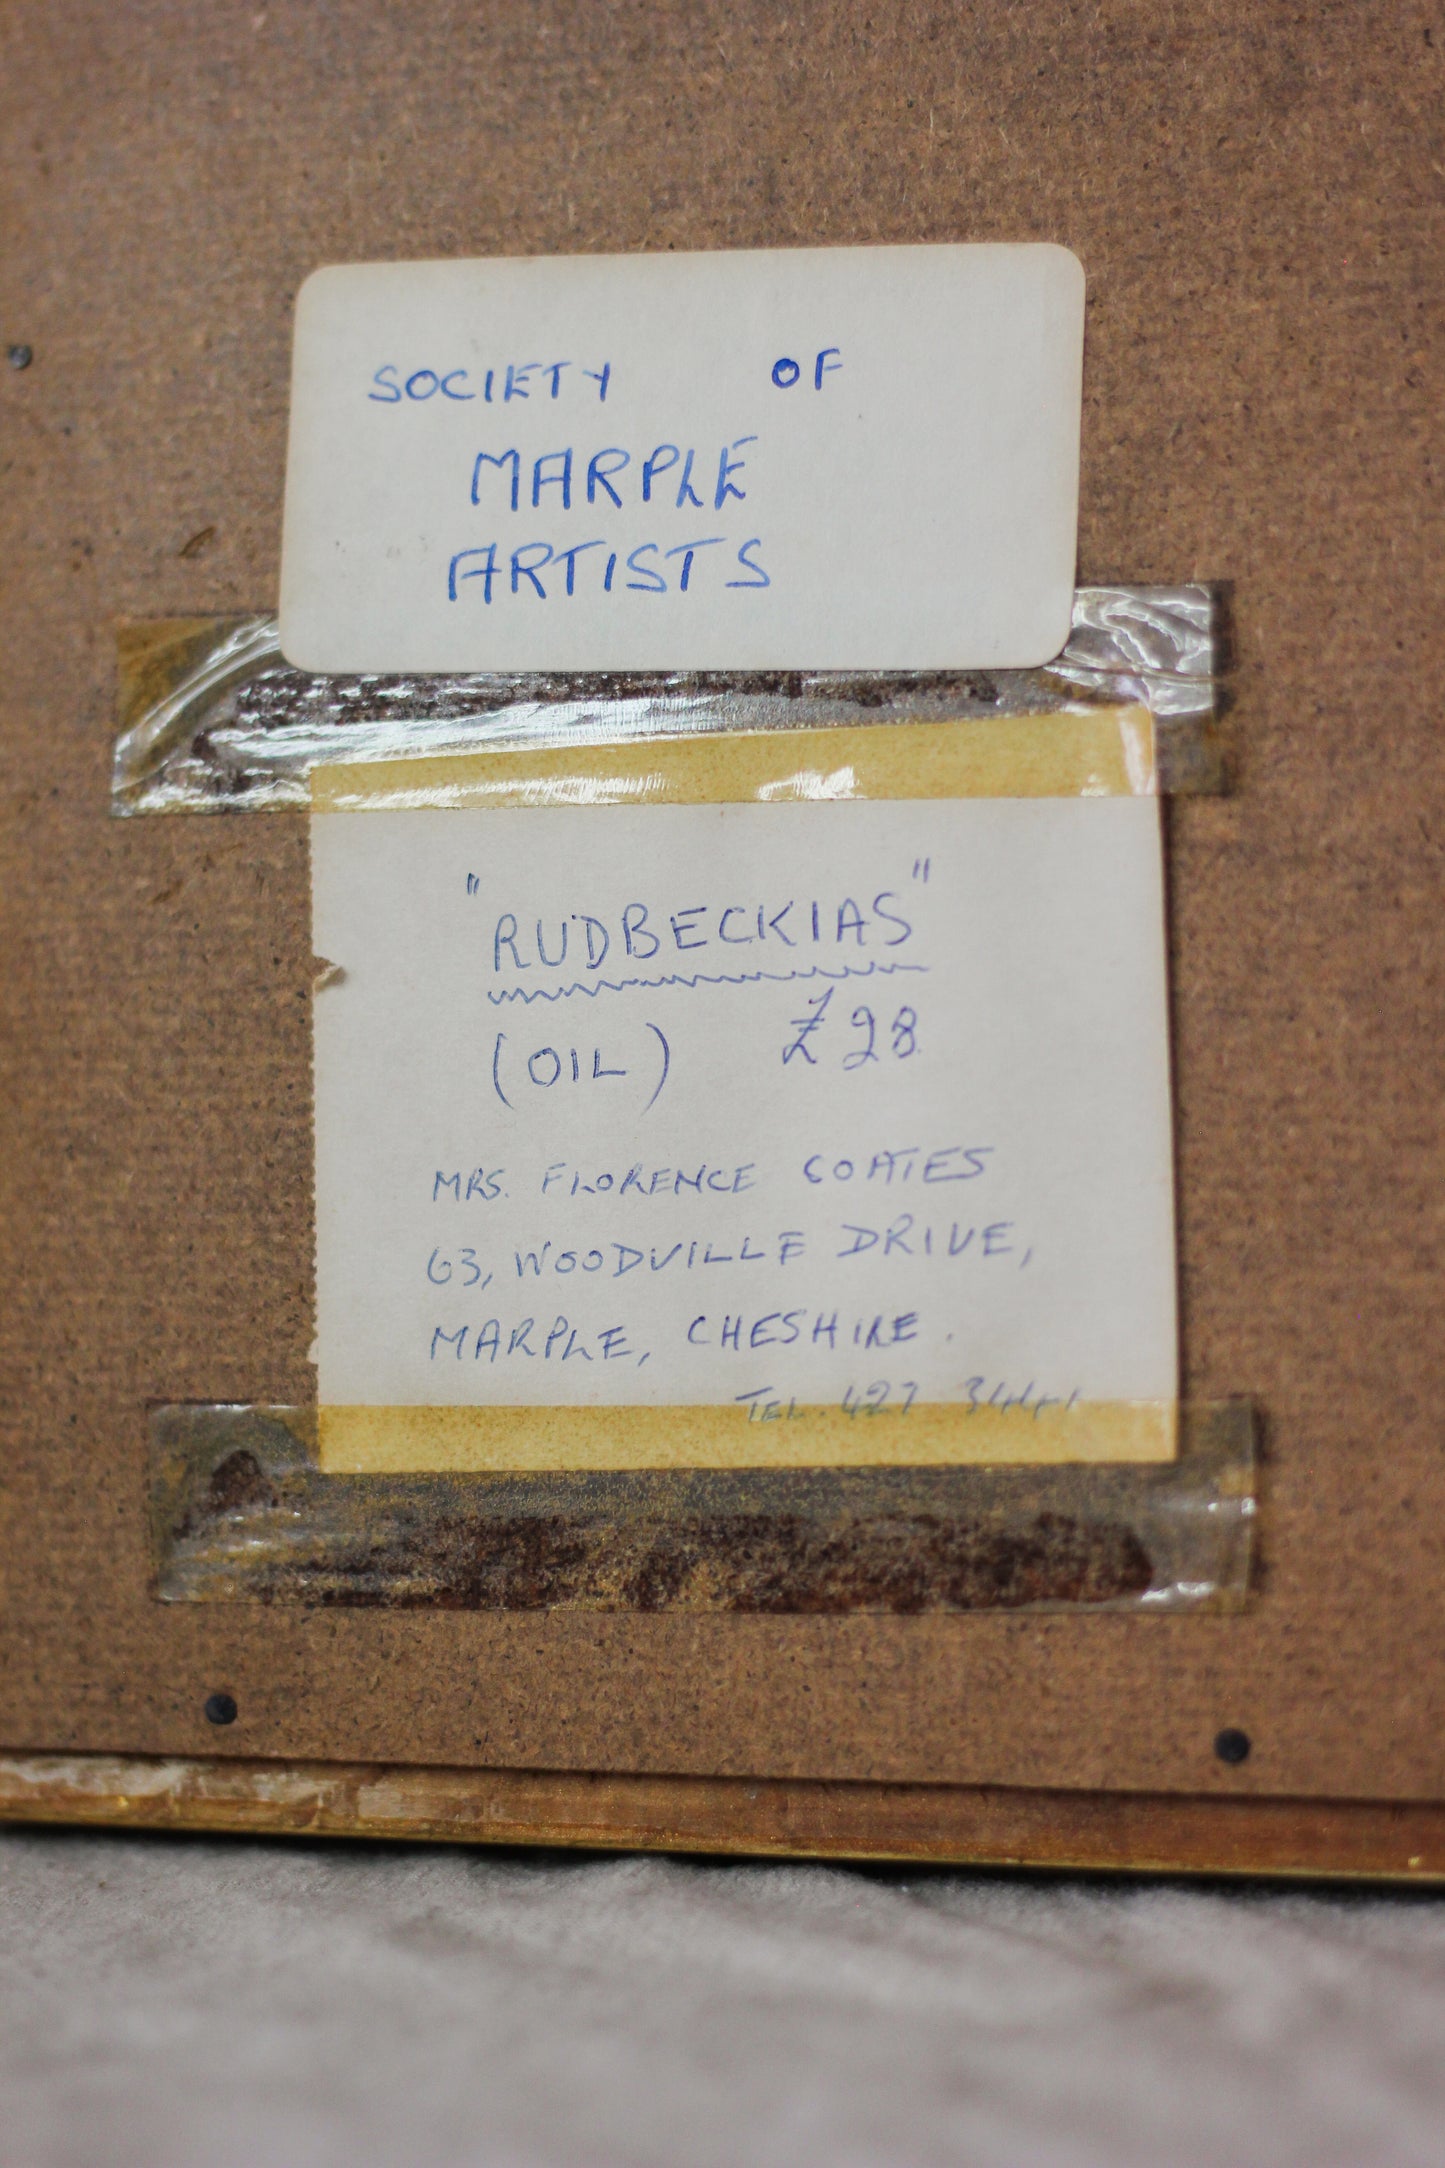 SOCIETY OF
MARPLE
ARTISTS
"RUDBECKIAS"
(OIL) £28
MRS. FLORENCE COATES
63, WOODVILLE DRIVE,
MARPLE, CHESHIRE.
TEL. 427